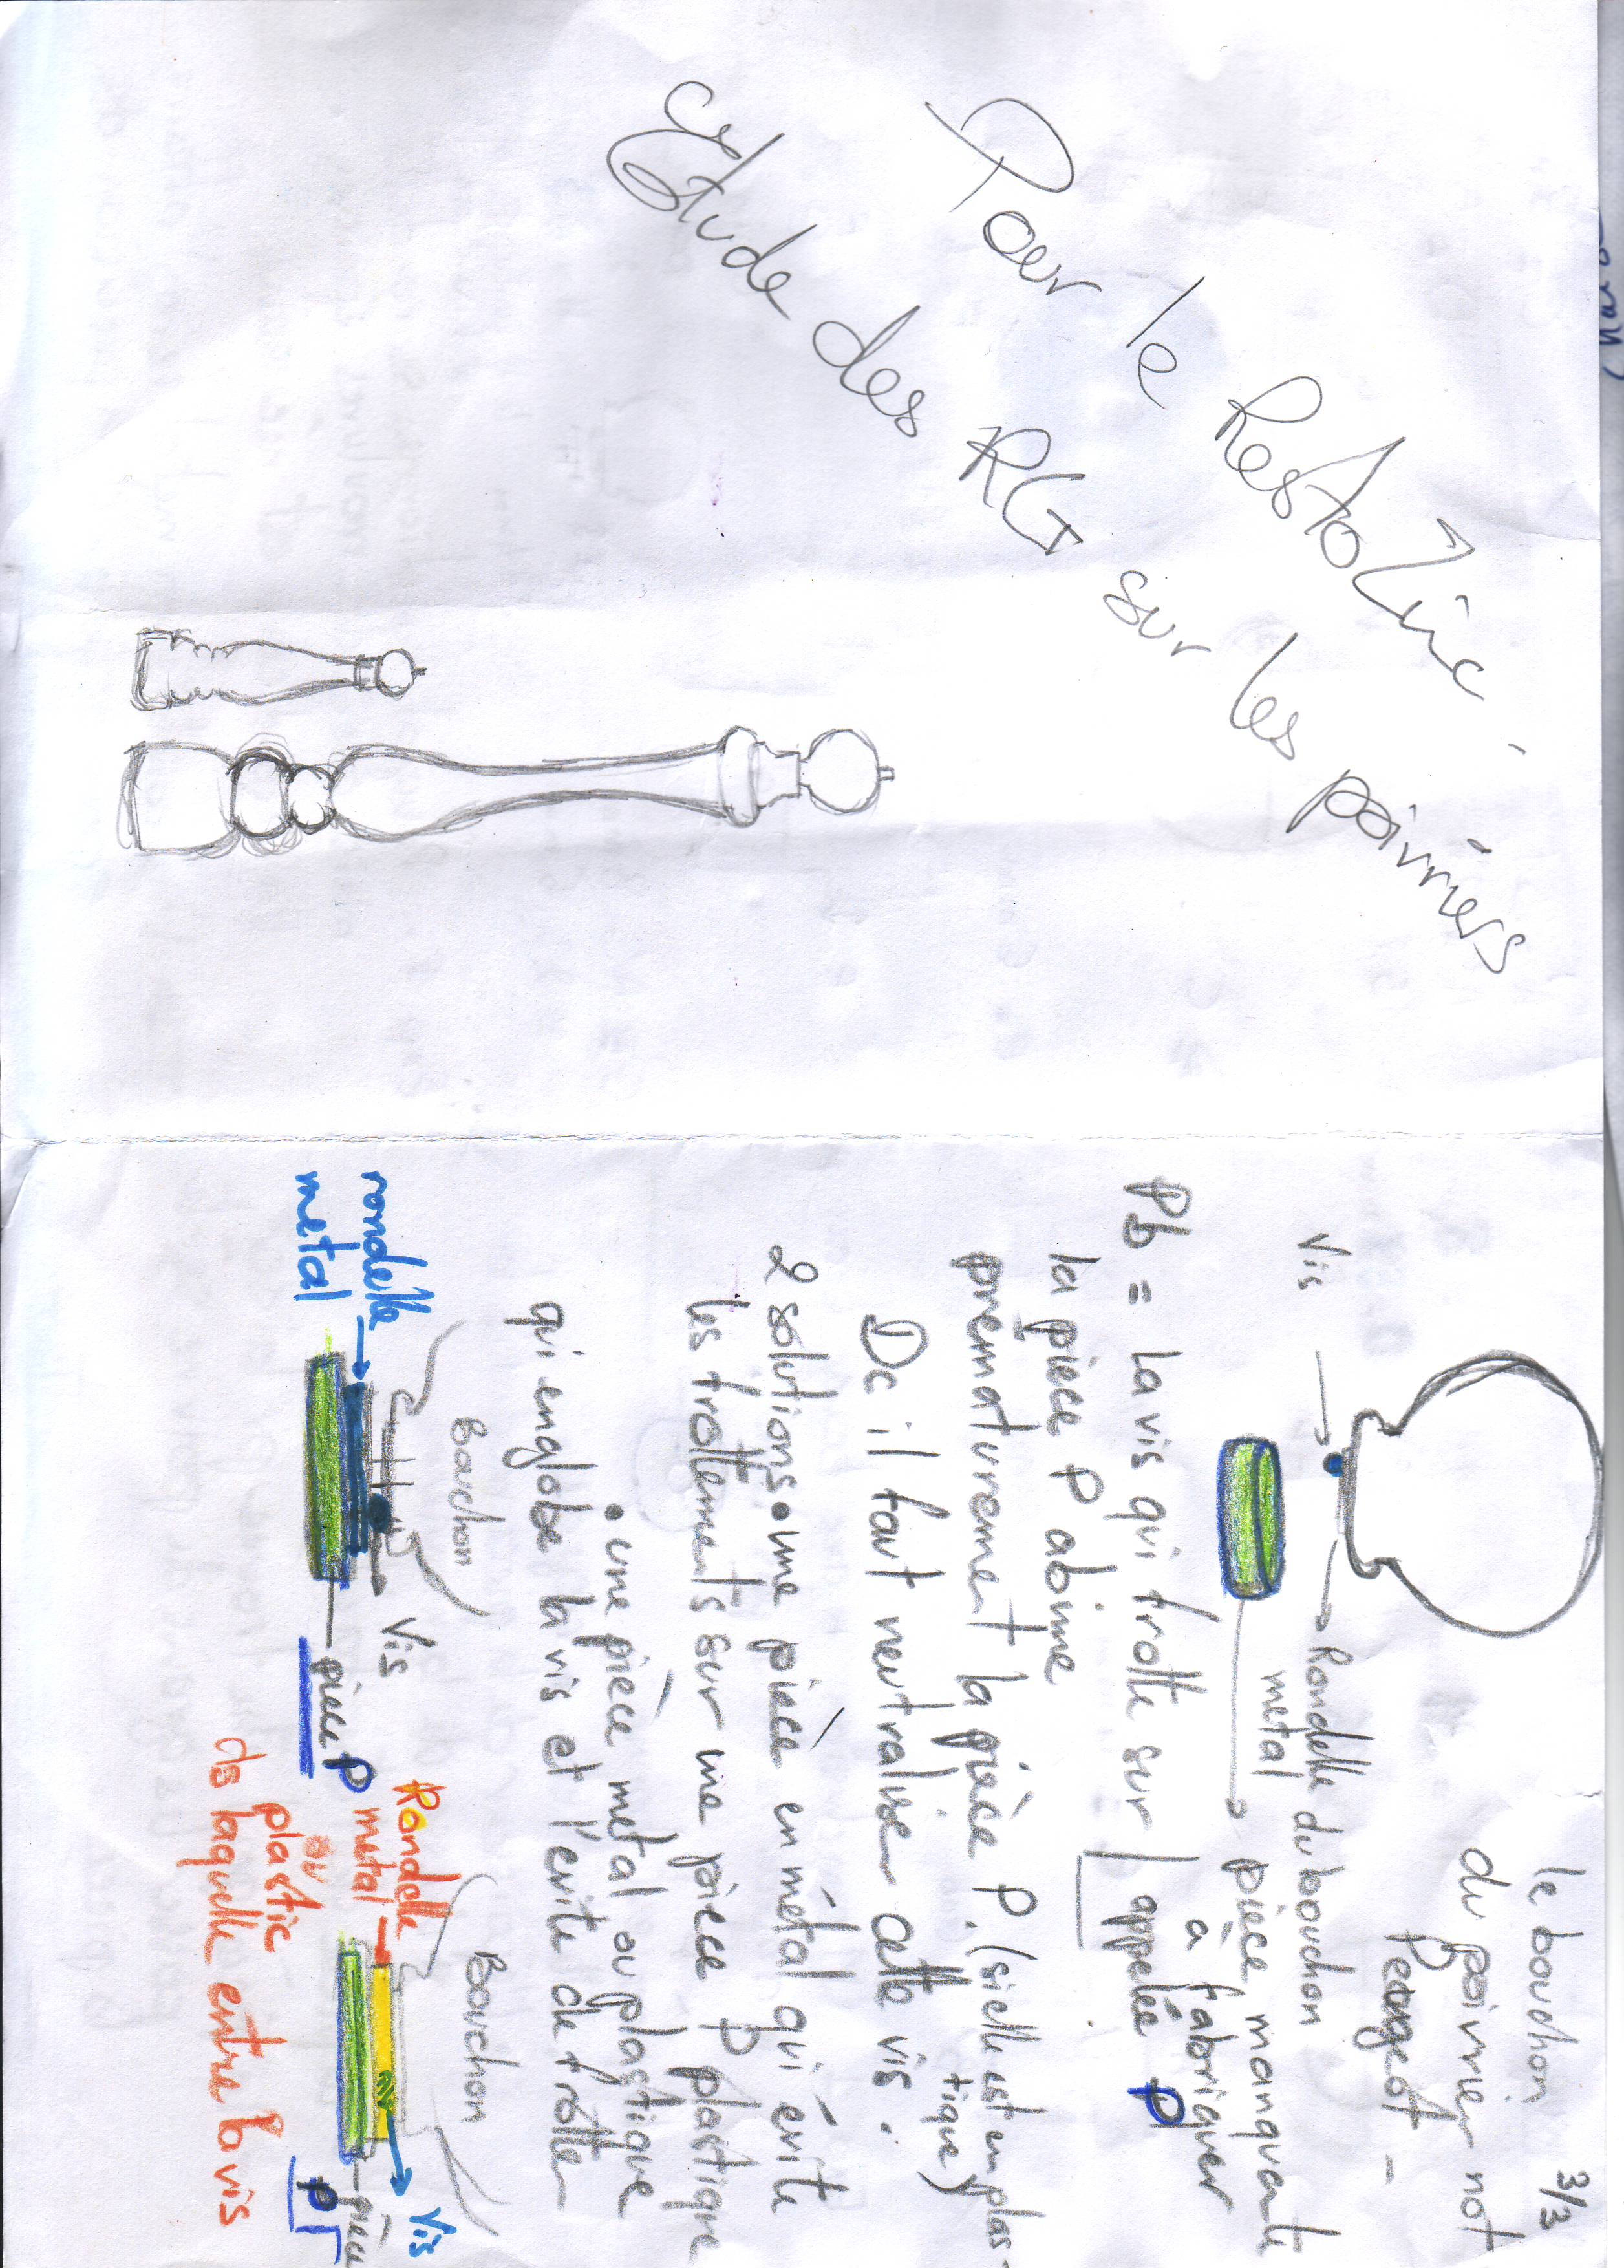 Pour le Restotruc
Etude des RG sur les poivriers
3/3
le bouchon
du poivrier not
Peugeot -
Vis
Rondelle du bouchon
metal
pièce manquante
à fabriquer
appelée P
Pb = la vis qui frotte sur
la pièce P abime
prématurément la pièce P. (si elle est en plas-
tique)
Dc il faut neutraliser cette vis.
2 solutions • une pièce en métal qui évite
les frottements sur une pièce P plastique
• une pièce metal ou plastique
qui englobe la vis et l'évite de frotter
rondelle
metal
Bouchon
Vis
pièce P
Rondelle
metal
ou
plastic
ds laquelle entre la vis
Bouchon
Vis
pièce
P